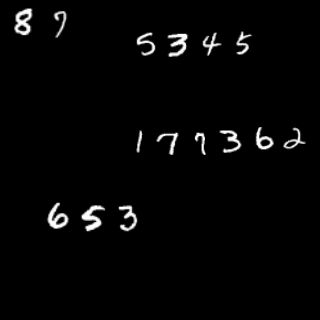 87
5345
177362
653